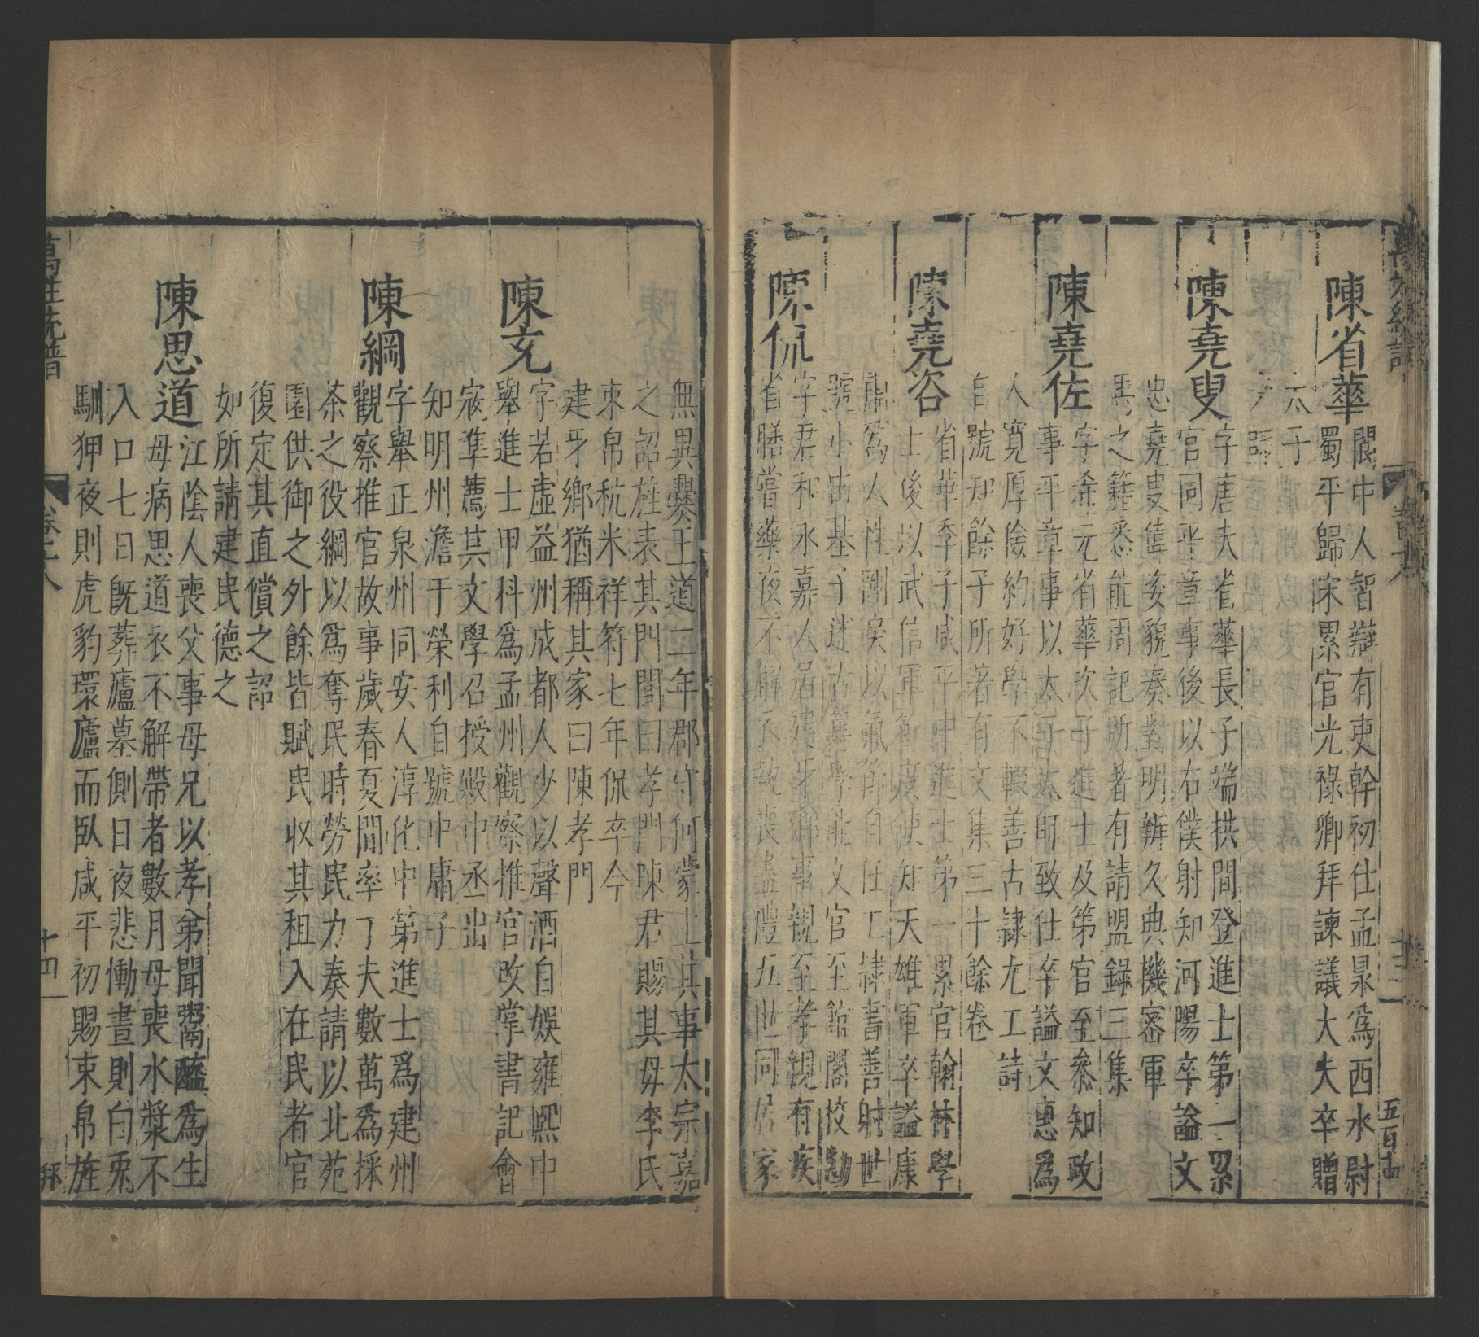 陳省華
閬中人智辯有吏幹初仕孟昶為西水尉
蜀平歸宋累官光祿卿拜諫議大夫卒贈
太子
陳堯叟
字唐夫省華長子端拱間登進士第一累
官同平章事後以右僕射知河陽卒謚文
忠堯叟偉姿貌奏對明辨久典機密軍
馬之籍悉能周記所著有請盟錄三集
陳堯佐
字希元省華次子進士及第官至參知政
事平章事以太子太師致仕卒謚文惠為
人寬厚儉約好學不輟善古隸尤工詩
自號知餘子所著有文集三十餘卷
陳堯咨
省華季子咸平中進士第一累官翰林學
士後以武信軍節度使知天雄軍卒謚康
肅為人性剛戾以氣節自任工隸書善射世
號小由基子述古篤學能文官至館閣校勘
陳侃
字君和永嘉人居建牙鄉事親至孝親有疾
省膳嘗藥夜不解衣執喪盡禮五世同居家
無異爨至道二年郡守何蒙上其事太宗嘉
之詔旌表其門閭曰孝門陳君賜其母李氏
束帛秔米祥符七年侃卒今
建牙鄉猶稱其家曰陳孝門
陳充
字若虛益州成都人少以聲酒自娛雍熙中
舉進士甲科為孟州觀察推官改掌書記會
寇準薦其文學召授殿中丞出
知明州澹于榮利自號中庸子
陳綱
字舉正泉州同安人淳化中第進士為建州
觀察推官故事歲春夏間率丁夫數萬為採
茶之役綱以為奪民時勞民力奏請以北苑
園供御之外餘皆賦民收其租入在民者官
復定其直償之詔
如所請建民德之
陳思道
江陰人喪父事母兄以孝弟聞鬻醯為生
母病思道衣不解帶者數月母喪水漿不
入口七日既葬廬墓側日夜悲慟晝則白兔
馴狎夜則虎豹環廬而臥咸平初賜束帛旌
萬姓統譜
卷十八
十四
五百十四